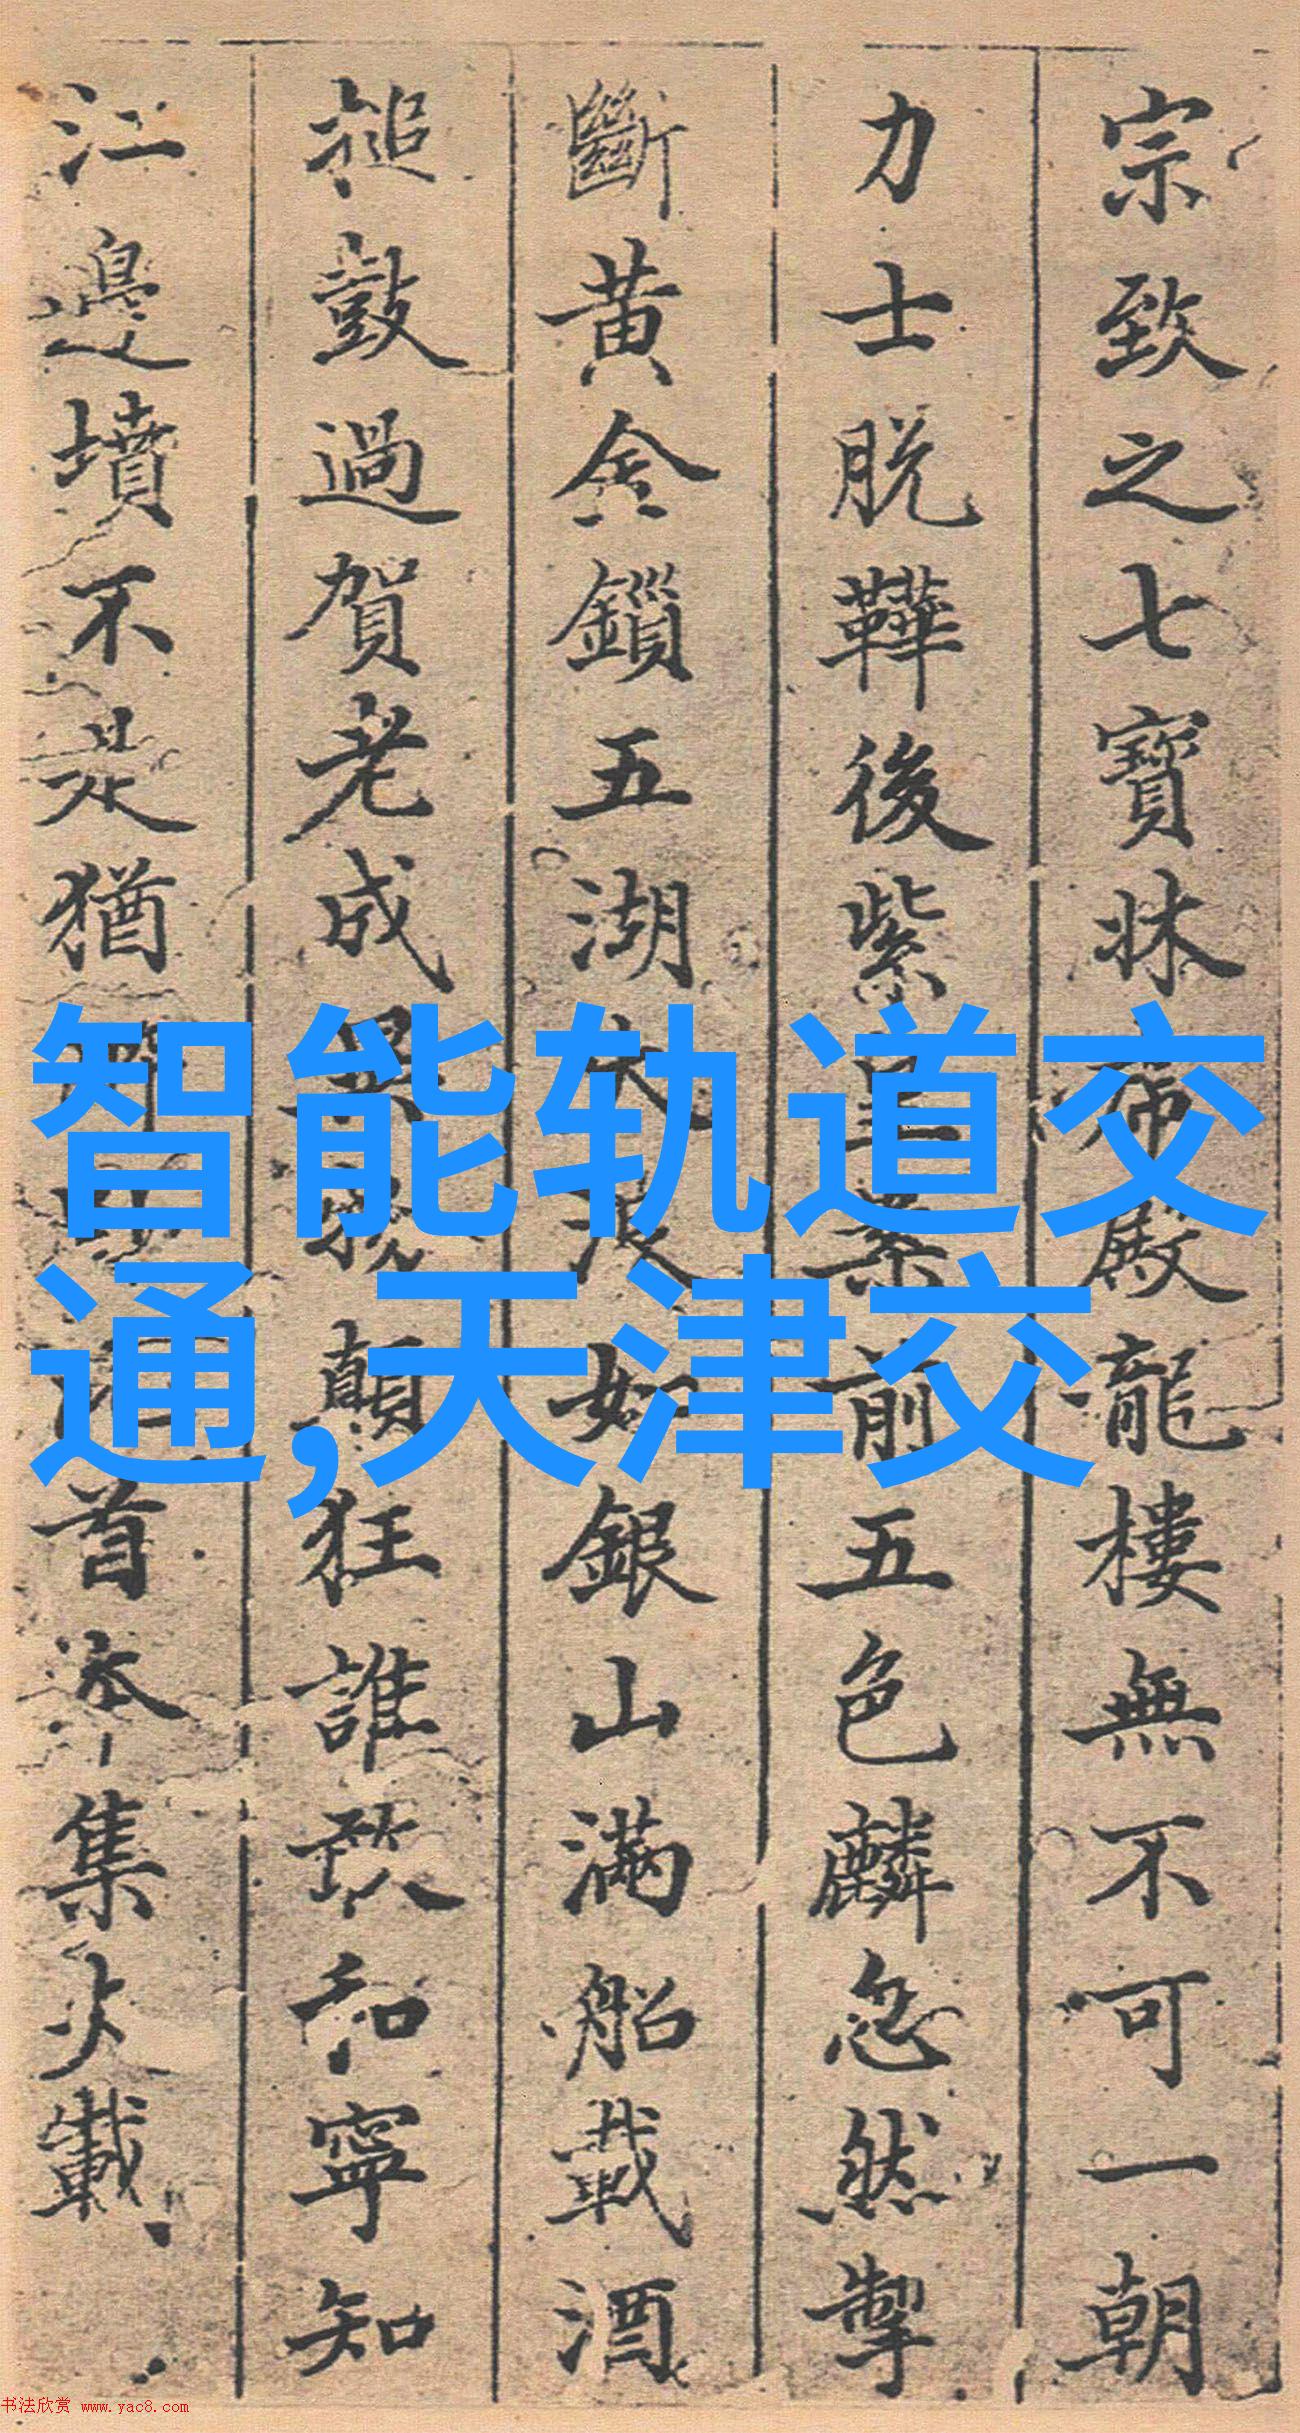 宗致之七寶牀殿龍樓無不可一朝
力士脫鞾後紫前五色麟忽然掣
斷黃金鎖五湖大浪如銀山滿船載酒
搥鼓過賀老成異物顛狂誰敢和寧知
江邊墳不是猶首本集火載
智能轨道交
通,天津交
书法欣赏 www.yac8.com